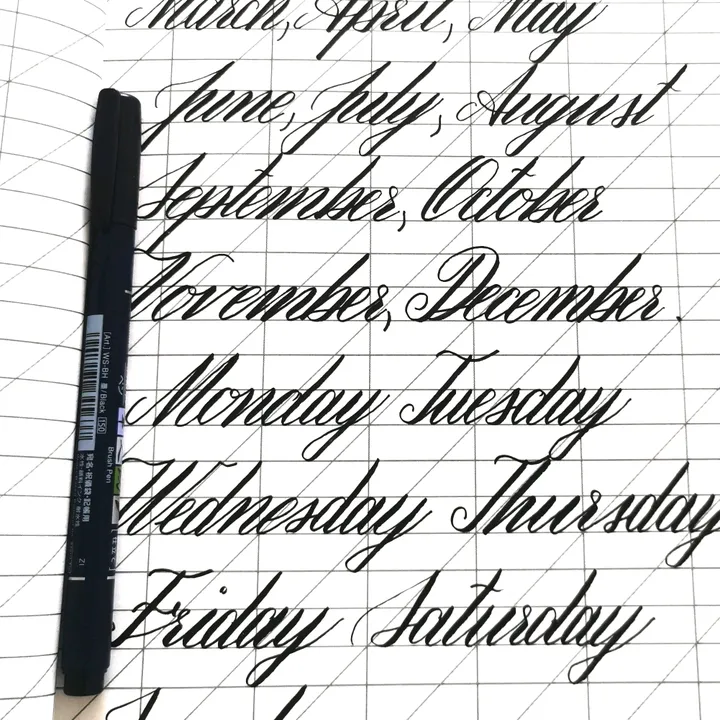 March, April, May
June, July, August
September, October
November, December.
Monday Tuesday
Wednesday Thursday
Friday Saturday
[Art.] WS-BH 墨/Black 150
Brush Pen
宛名・祝儀袋・記帳用
Z1